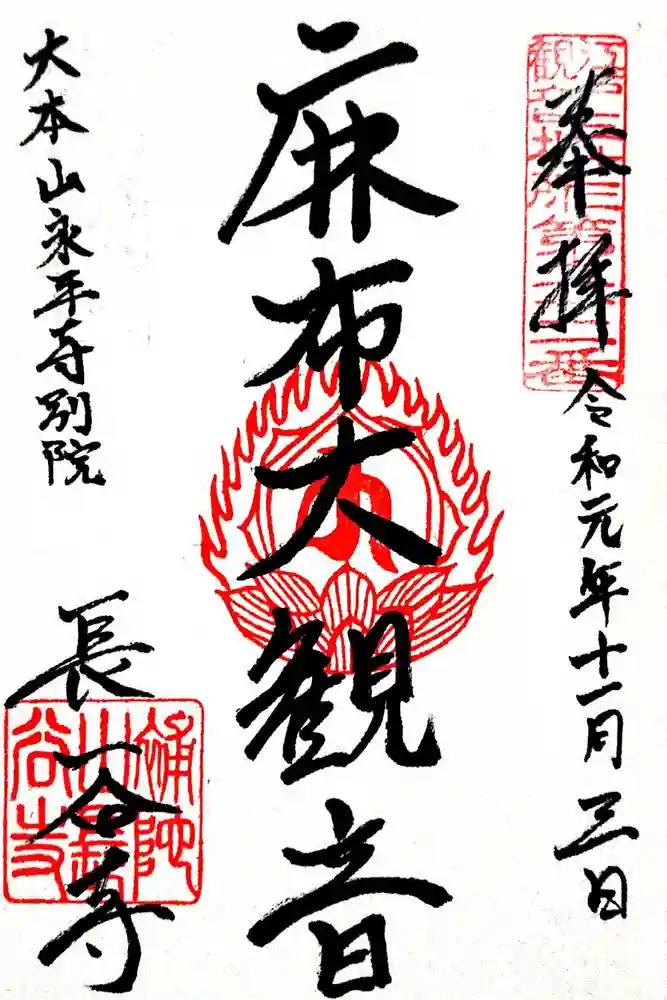 奉拝
令和元年十一月三日
麻布大観音
大本山永平寺別院
長谷寺